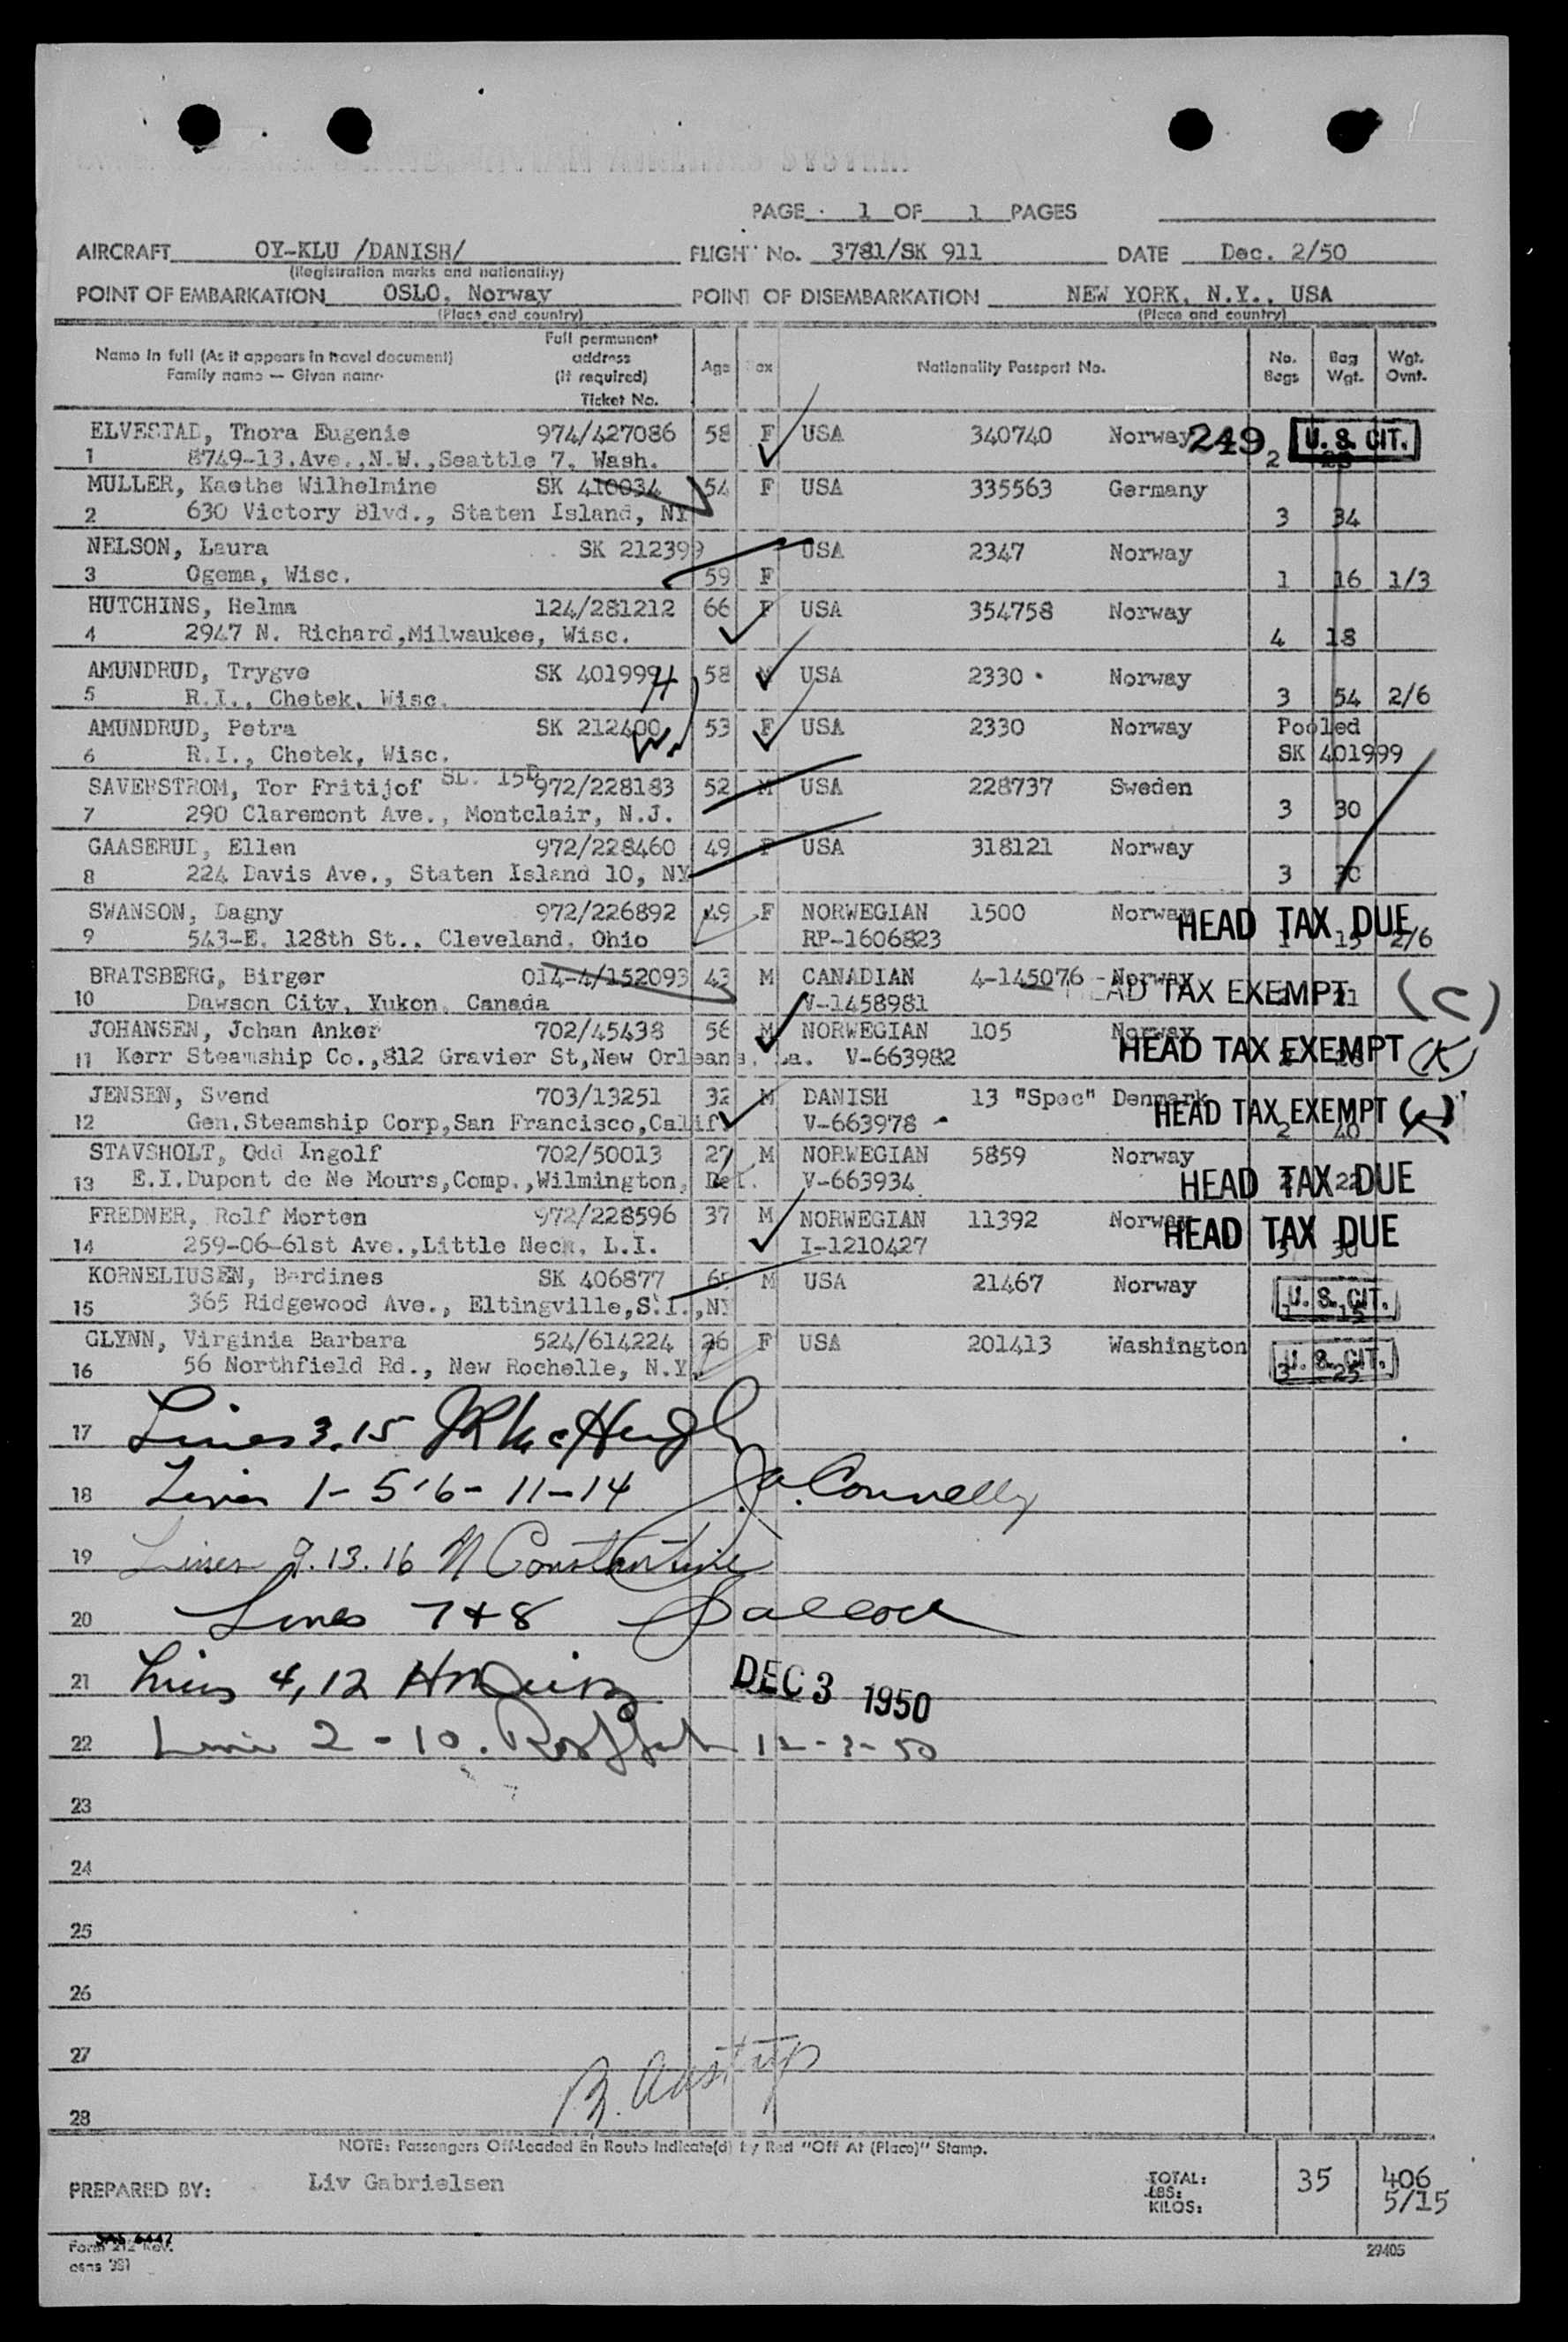 PAGE 1 OF 1 PAGES
AIRCRAFT OY-KLU /DANISH/ FLIGHT No. 3781/SK 911 DATE Dec. 2/50
(Registration marks and nationality)
POINT OF EMBARKATION OSLO, Norway POINT OF DISEMBARKATION NEW YORK, N.Y., USA
(Place and country) (Place and country)
Name in full (As it appears in travel document) Family name — Given name
Full permanent address (if required) Ticket No.
Age Sex Nationality Passport No. No. Bags Bag Wgt. Wgt. Ovnt.
ELVESTAD, Thora Eugenie 974/427086 58 F USA 340740 Norway 249 U. S. CIT.
1 8749-13.Ave.,N.W.,Seattle 7, Wash. 2
MULLER, Kaethe Wilhelmine SK 410034 54 F USA 335563 Germany
2 630 Victory Blvd., Staten Island, NY 3 34
NELSON, Laura SK 212399 USA 2347 Norway
3 Ogema, Wisc. 59 F 1 16 1/3
HUTCHINS, Helma 124/281212 66 F USA 354758 Norway
4 2947 N. Richard,Milwaukee, Wisc. 4 18
AMUNDRUD, Trygve SK 401999 58 M USA 2330 Norway
5 R.I., Chetek, Wisc. 3 54 2/6
AMUNDRUD, Petra SK 212400 53 F USA 2330 Norway Pooled
6 R.I., Chetek, Wisc. SK 401999
SAVERSTROM, Tor Fritijof 972/228183 52 M USA 228737 Sweden
7 290 Claremont Ave., Montclair, N.J. 3 30
GAASERUD, Ellen 972/228460 49 F USA 318121 Norway
8 224 Davis Ave., Staten Island 10, NY 3
SWANSON, Dagny 972/226892 49 F NORWEGIAN 1500 Norway HEAD TAX DUE
9 543-E. 128th St., Cleveland, Ohio RP-1606823 1 15 2/6
BRATSBERG, Birger 014-4/152093 43 M CANADIAN 4-145076 - Norway
10 Dawson City, Yukon, Canada V-1458981 HEAD TAX EXEMPT (C)
JOHANSEN, Johan Anker 702/45438 56 M NORWEGIAN 105 Norway
11 Kerr Steamship Co.,812 Gravier St,New Orleans, La. V-663982 HEAD TAX EXEMPT (K)
JENSEN, Svend 703/13251 32 M DANISH 13 "Spec" Denmark HEAD TAX EXEMPT
12 Gen.Steamship Corp,San Francisco,Calif. V-663978 2 40
STAVSHOLT, Odd Ingolf 702/50013 27 M NORWEGIAN 5859 Norway
13 E.I.Dupont de Ne Mours,Comp.,Wilmington, Del. V-663934 HEAD TAX DUE 22
FREDNER, Rolf Morten 972/228596 37 M NORWEGIAN 11392 Norway HEAD TAX DUE
14 259-06-61st Ave.,Little Neck, L.I. I-1210427 3 30
KORNELIUSEN, Bardines SK 406877 M USA 21467 Norway U. S. CIT.
15 365 Ridgewood Ave., Eltingville,S.I.,NY 15
GLYNN, Virginia Barbara 524/614224 26 F USA 201413 Washington U. S. CIT.
16 56 Northfield Rd., New Rochelle, N.Y. 3 25
17 Lines 3.15 JR McHugh
18 Lines 1-5-6-11-14 J.A. Connelly
19 Lines 9.13.16 N Constantine
20 Lines 7+8
21 Lines 4,12 DEC 3 1950
22 Line 2-10. 12-3-50
23
24
25
26
27
28
NOTE: Passengers Off-Loaded En Route Indicate(d) by Red "Off At (Place)" Stamp.
PREPARED BY: Liv Gabrielsen TOTAL: LBS: KILOS: 35 406 5/15
SAS 6447
Form 212 Rev. 29405